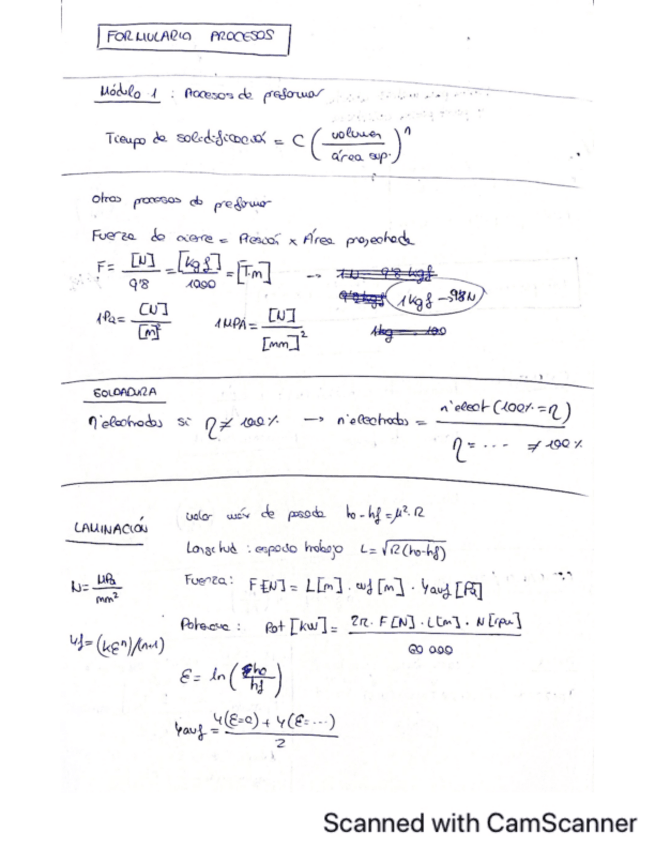 FORMULARIO PROCESOS
Módulo 1 : Procesos de preforma
Tiempo de solidificación = C (volumen / área sup.)^n
Otros procesos de preforma
Fuerza de cierre = Presión x Área proyectada
F = [N] / 9'8 = [kgf] / 1000 = [Tm] →
1 kgf - 9'8N
1Pa = [N] / [m]² 1MPA = [N] / [mm]²
SOLDADURA
nºelectrodos si η ≠ 100% → nºelectrodos = nºelect (100% = η) / η = ... ≠ 100%
LAMINACIÓN
valor máx de pasada ho - hf = μ². R
Longitud : espacio trabajo L = √R(ho-hf)
N = MPa / mm²
Fuerza : F[N] = L[m] . wf[m] . Yavf [Pa]
Potencia : Pot [kW] = 2π . F[N] . L[m] . N[rpm] / 60 000
Yf = (kε^n)/(n+1)
ε = ln (ho / hf)
Yavf = Y(ε=0) + Y(ε=...) / 2
Scanned with CamScanner